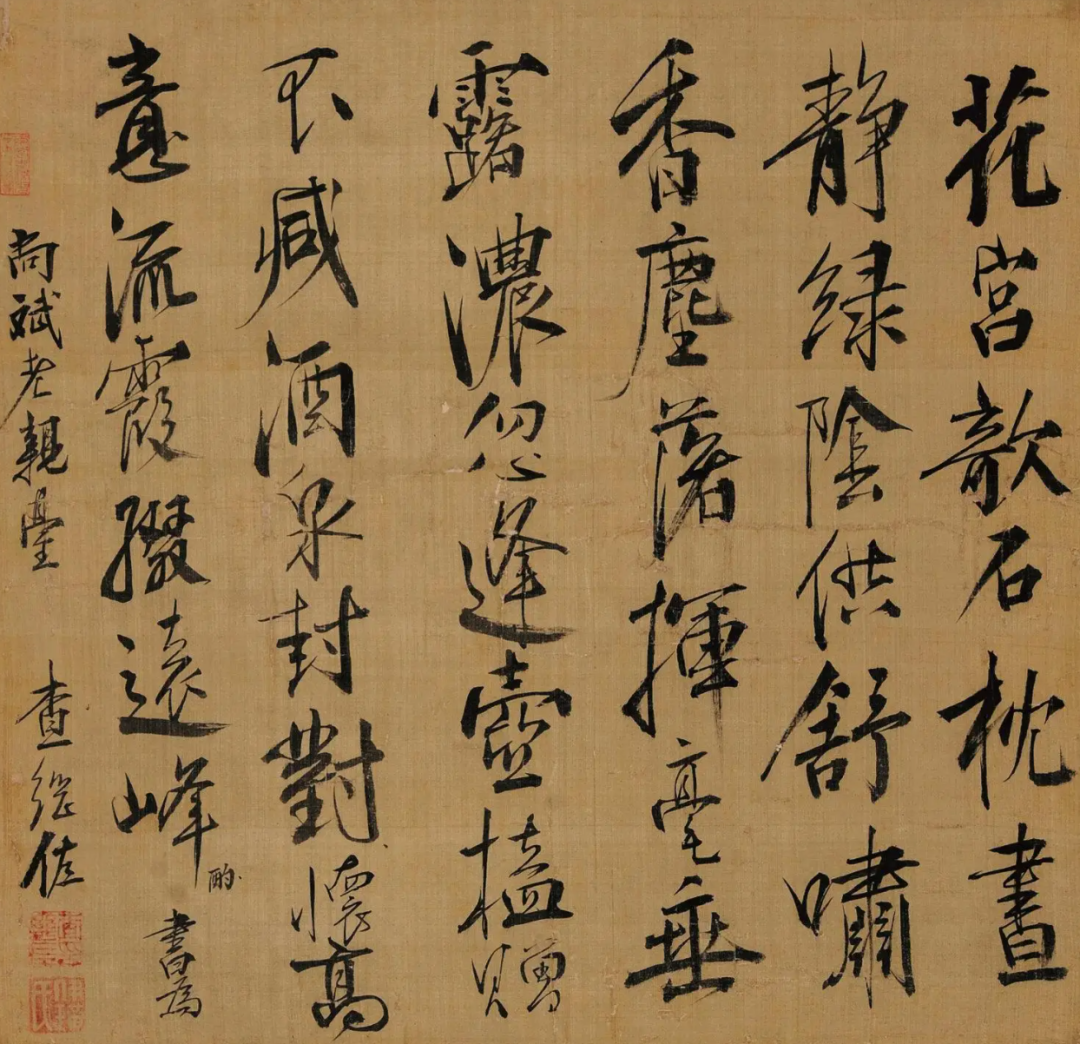 花宮欹石枕晝
靜綠陰供舒嘯
香塵落揮毫垂
露濃忽逢壺榼贈
不減酒泉封對懷高
意流霞綴遠峰酌書為
尚斌老親臺查繼佐